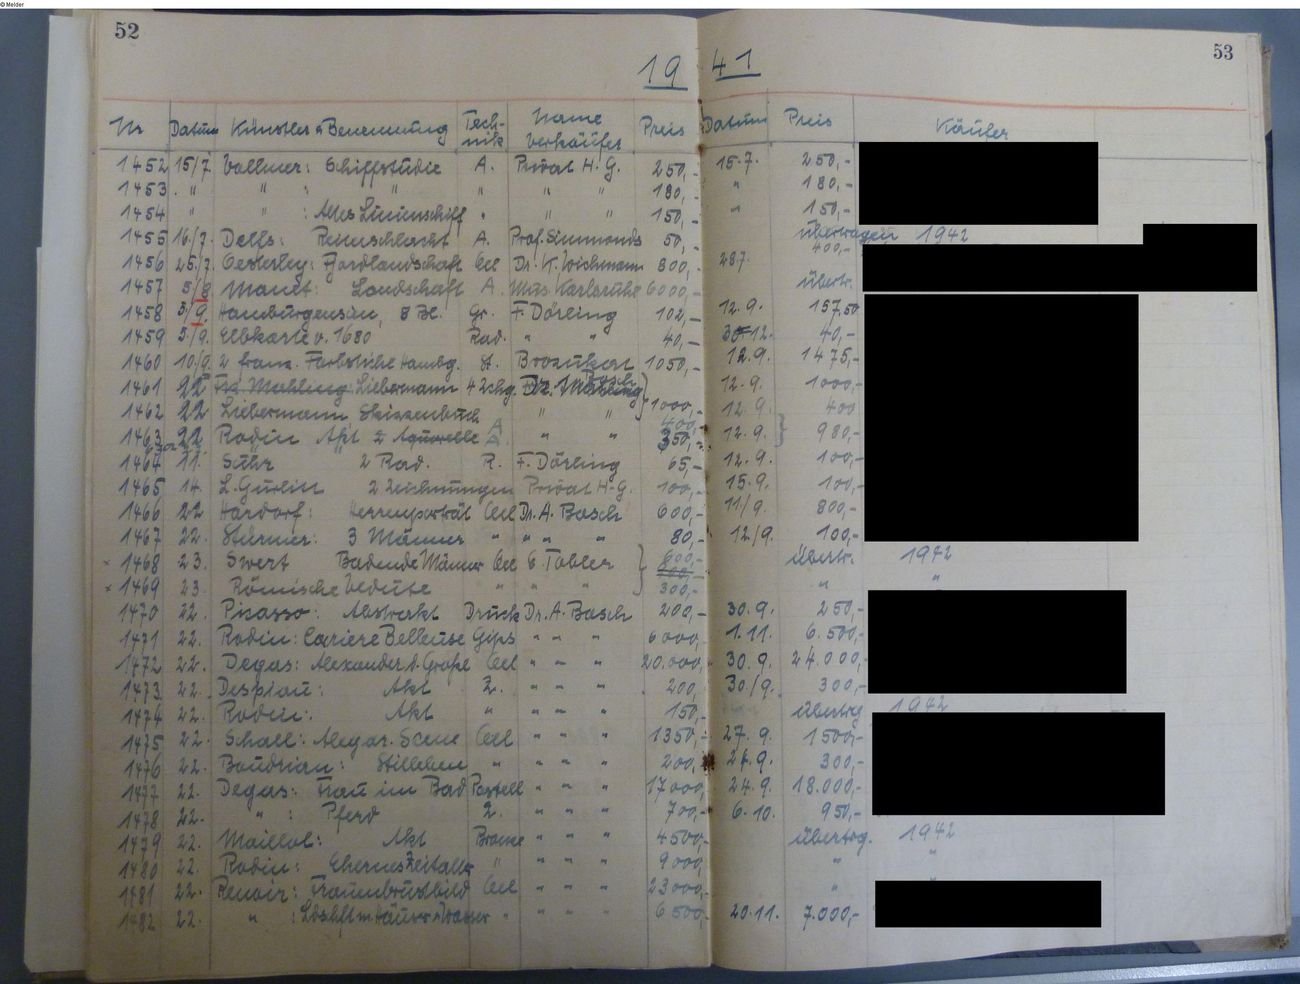 © Melder
52
53
19 41
Nr Datum Künstler u Benennung Technik Name Verkäufer Preis Datum Preis Käufer
1452 15/7. Vollmer: Schiffstudie A. Privat H. G. 250,- 15.7. 250,-
1453 " " " " " " 180,- " 180,-
1454 " " : Altes Linienschiff " " " 150,- " 150,-
1455 16/7. Delfs: Reiterschlacht A. Prof. Simmonds 50,- übertragen 1942
1456 25/7. Oesterley: Fjordlandschaft Oel Dr. K. Wichmann 300,- 28.7. 400,-
1457 5/8. Manet: Landschaft A. Mus. Karlsruhe 6000,- übertr.
1458 3/9. Hamburgensien, 8 Bl. Gr. F. Dörling 102,- 12.9. 157,50
1459 5/9. Elbkarte v. 1680 Rad. " " 40,- 30.12. 40,-
1460 10/9. 2 franz. Farbstiche Hambg. St. 1050,- 12.9. 1475,-
1461 22 Liebermann 4 Zchg. Dr. Basch 1000,- 12.9. 1000,-
1462 22 Liebermann Skizzenbuch " " 400,- 12.9. 400
1463 22. Rodin Akt 2 Aquarelle A. " " 350,- 12.9. 980,-
1464 11. Suhr 2 Rad. R. F. Dörling 65,- 12.9. 100,-
1465 14. L. Gurlitt 2 Zeichnungen Privat H-G. 100,- 15.9. 100,-
1466 22 Hardorf: Herrenporträt Oel Dr. A. Basch 600,- 11/9. 800,-
1467 22. Stürmer: 3 Männer " " " 80,- 12/9. 100,-
x 1468 23. Badende Männer Oel E. Tobler 600,- übertr. 1942
x 1469 23. Römische Vedute " " " 300,- " "
1470 22. Picasso: Abstrakt Druck Dr. A. Basch 200,- 30.9. 250,-
1471 22. Rodin: Cariere Belleuse Gips " " " 6000,- 1.11. 6.500,-
1472 22. Degas: Alexander d. Große Oel " " " 20.000,- 30.9. 24.000,-
1473 22. Despiau: Akt Z. " " " 200,- 30./9. 300,-
1474 22. Rodin: Akt " " " " 150,- übertrg 1942
1475 22. Schall: Allegor. Scene Oel " " " 1350,- 27.9. 1500,-
1476 22. Baudrian: Stilleben " " " " 200,- 27.9. 300,-
1477 22. Degas: Frau im Bad Pastell " " " 17000,- 24.9. 18.000,-
1478 22. " : Pferd Z. " " " 700,- 6.10. 950,-
1479 22. Maillol: Akt Bronze " " " 4500,- übertrg. 1942
1480 22. Rodin: Ehernes Zeitalter " " " " 9000,- " "
1481 22. Renoir: Frauenbrustbild Oel " " " 23000,- "
1482 22. " : Ldschft m. Häusern u Wasser " " " 6500,- 20.11. 7.000,-